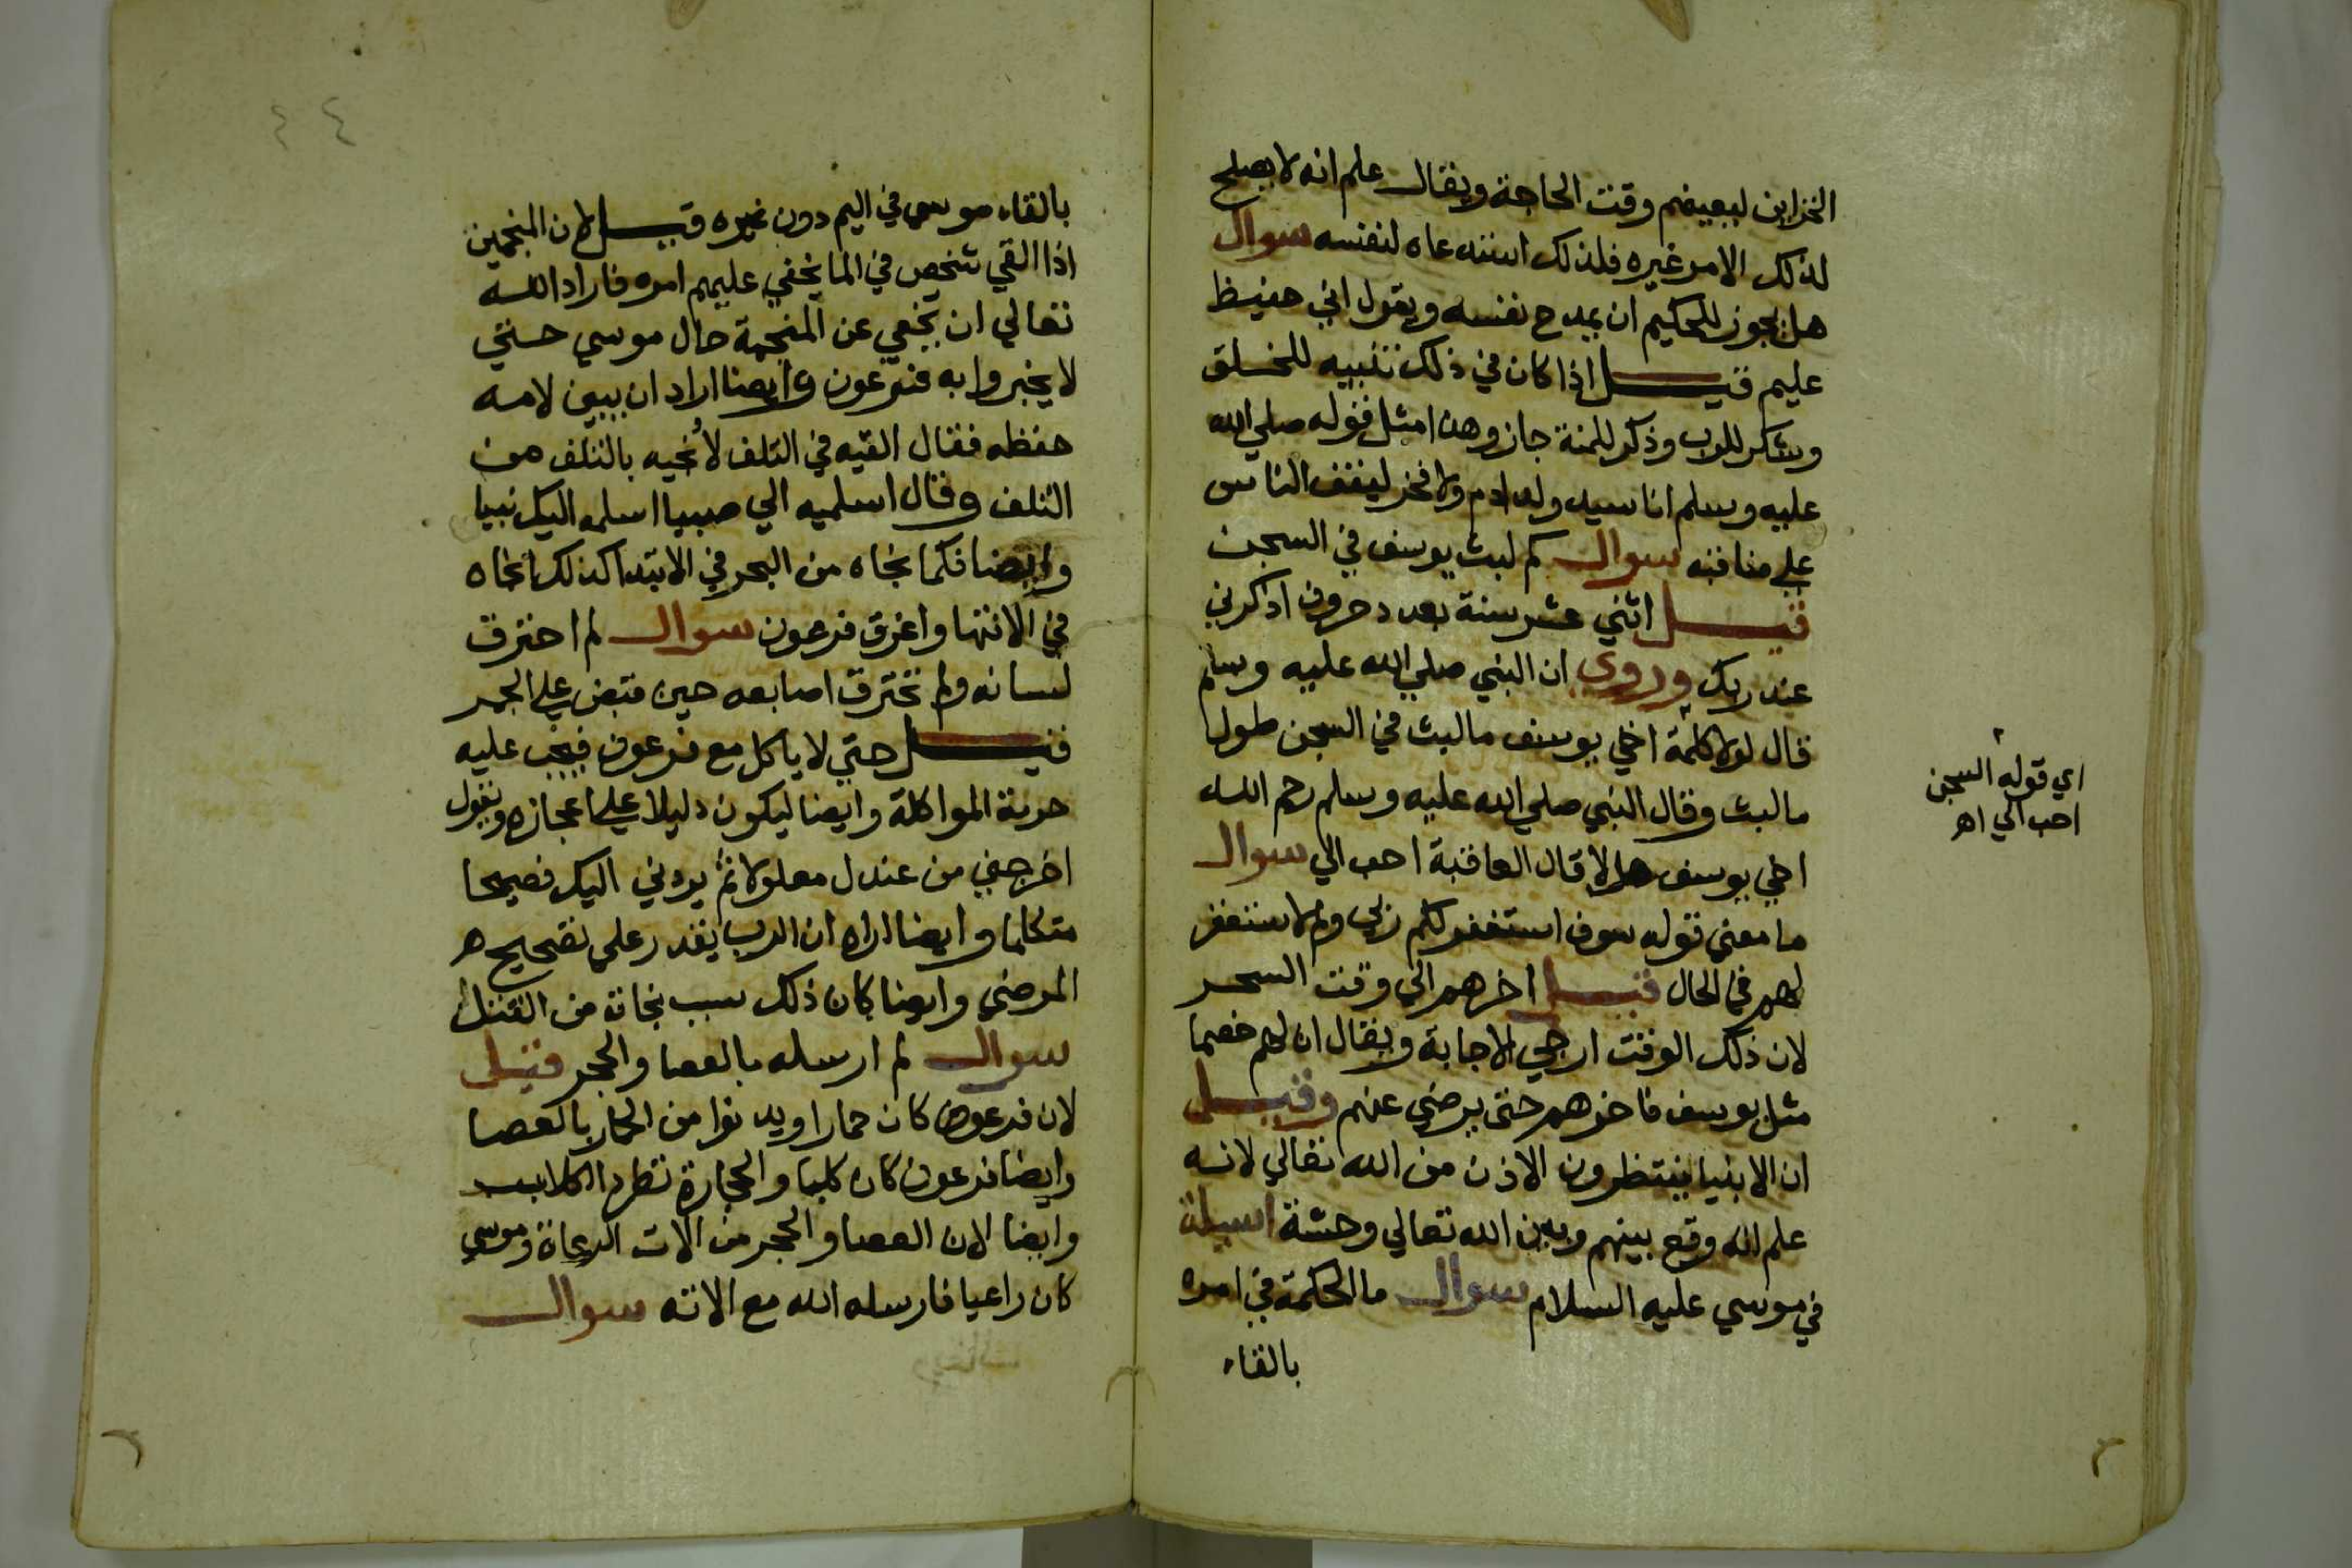 الخزاين لبعيضم وقت الحاجة ويقال علم انه لا يصلح
لذلك الامر غيره فلذلك استدعاه لنفسه سوال
هل يجوز للحكيم ان يمدح نفسه ويقول اني حفيظ
عليم قيل اذا كان في ذلك تنبيه للخلق
وشكر للرب وذكر للمنة جاز وهذا مثل قوله صلي الله
عليه وسلم انا سيد ولد ادم ولا فخر ليقف الناس
علي مناقبه سوال كم لبث يوسف في السجن
قيل اثني عشر سنة بعدد حروف اذكرني
عند ربك وروي ان النبي صلي الله عليه وسلم
قال لولا كلمة اخي يوسف ما لبث في السجن طول
ما لبث وقال النبي صلي الله عليه وسلم رحم الله
اخي يوسف هلا قال العافية احب الي سوال
ما معني قوله سوف استغفر لكم ربي ولم لا ستغفر
لهم في الحال قيل اخرهم الي وقت السحر
لان ذلك الوقت ارجي الاجابة ويقال ان لهم خصما
مثل يوسف فاخرهم حتى يرضي عنهم وقيل
ان الانبيا ينتظرون الاذن من الله تعالي لانه
علم انه وقع بينهم وبين الله تعالي وحشة اسيلة
في موسي عليه السلام سوال ما الحكمة في امره
بالقاء
اي قوله السجن
احب الي اهـ
٤٤
بالقاء موسي في اليم دون غيره قيل لان المنجمين
اذا القي شخص في الما يخفي عليهم امره فاراد الله
تعالي ان يخفي عن المنجمة حال موسي حتي
لا يخبروا به فرعون وايضا اراد ان يبين لامه
حفظه فقال القيه في التلف لأنجيه بالتلف من
التلف وقال اسلميه الي صبيا اسلمه اليك نبيا
وايضا فكما نجاه من البحر في الابتدا كذلك انجاه
في الانتها واغرق فرعون سوال لم احترق
لسانه ولم تحترق اصابعه حين قبض علي الجمر
قيل حتي لا ياكل مع فرعون فيجب عليه
حرمة المواكلة وايضا ليكون دليلا علي اعجازه ويقول
اخرجني من عندك معلولا ثم يردني اليك فصيحا
متكلما وايضا اراه ان الرب يقدر على تصحيح
المرضي وايضا كان ذلك سبب نجاته من القتل
سوال لم ارسله بالعصا والحجر قيل
لان فرعون كان حمارا ويدنوا من الحمار بالعصا
وايضا فرعون كان كلبا والحجارة تطرد الكلاب
وايضا لان العصا والحجر من الات الرعاة وموسي
كان راعيا فارسله الله مع الاته سوال